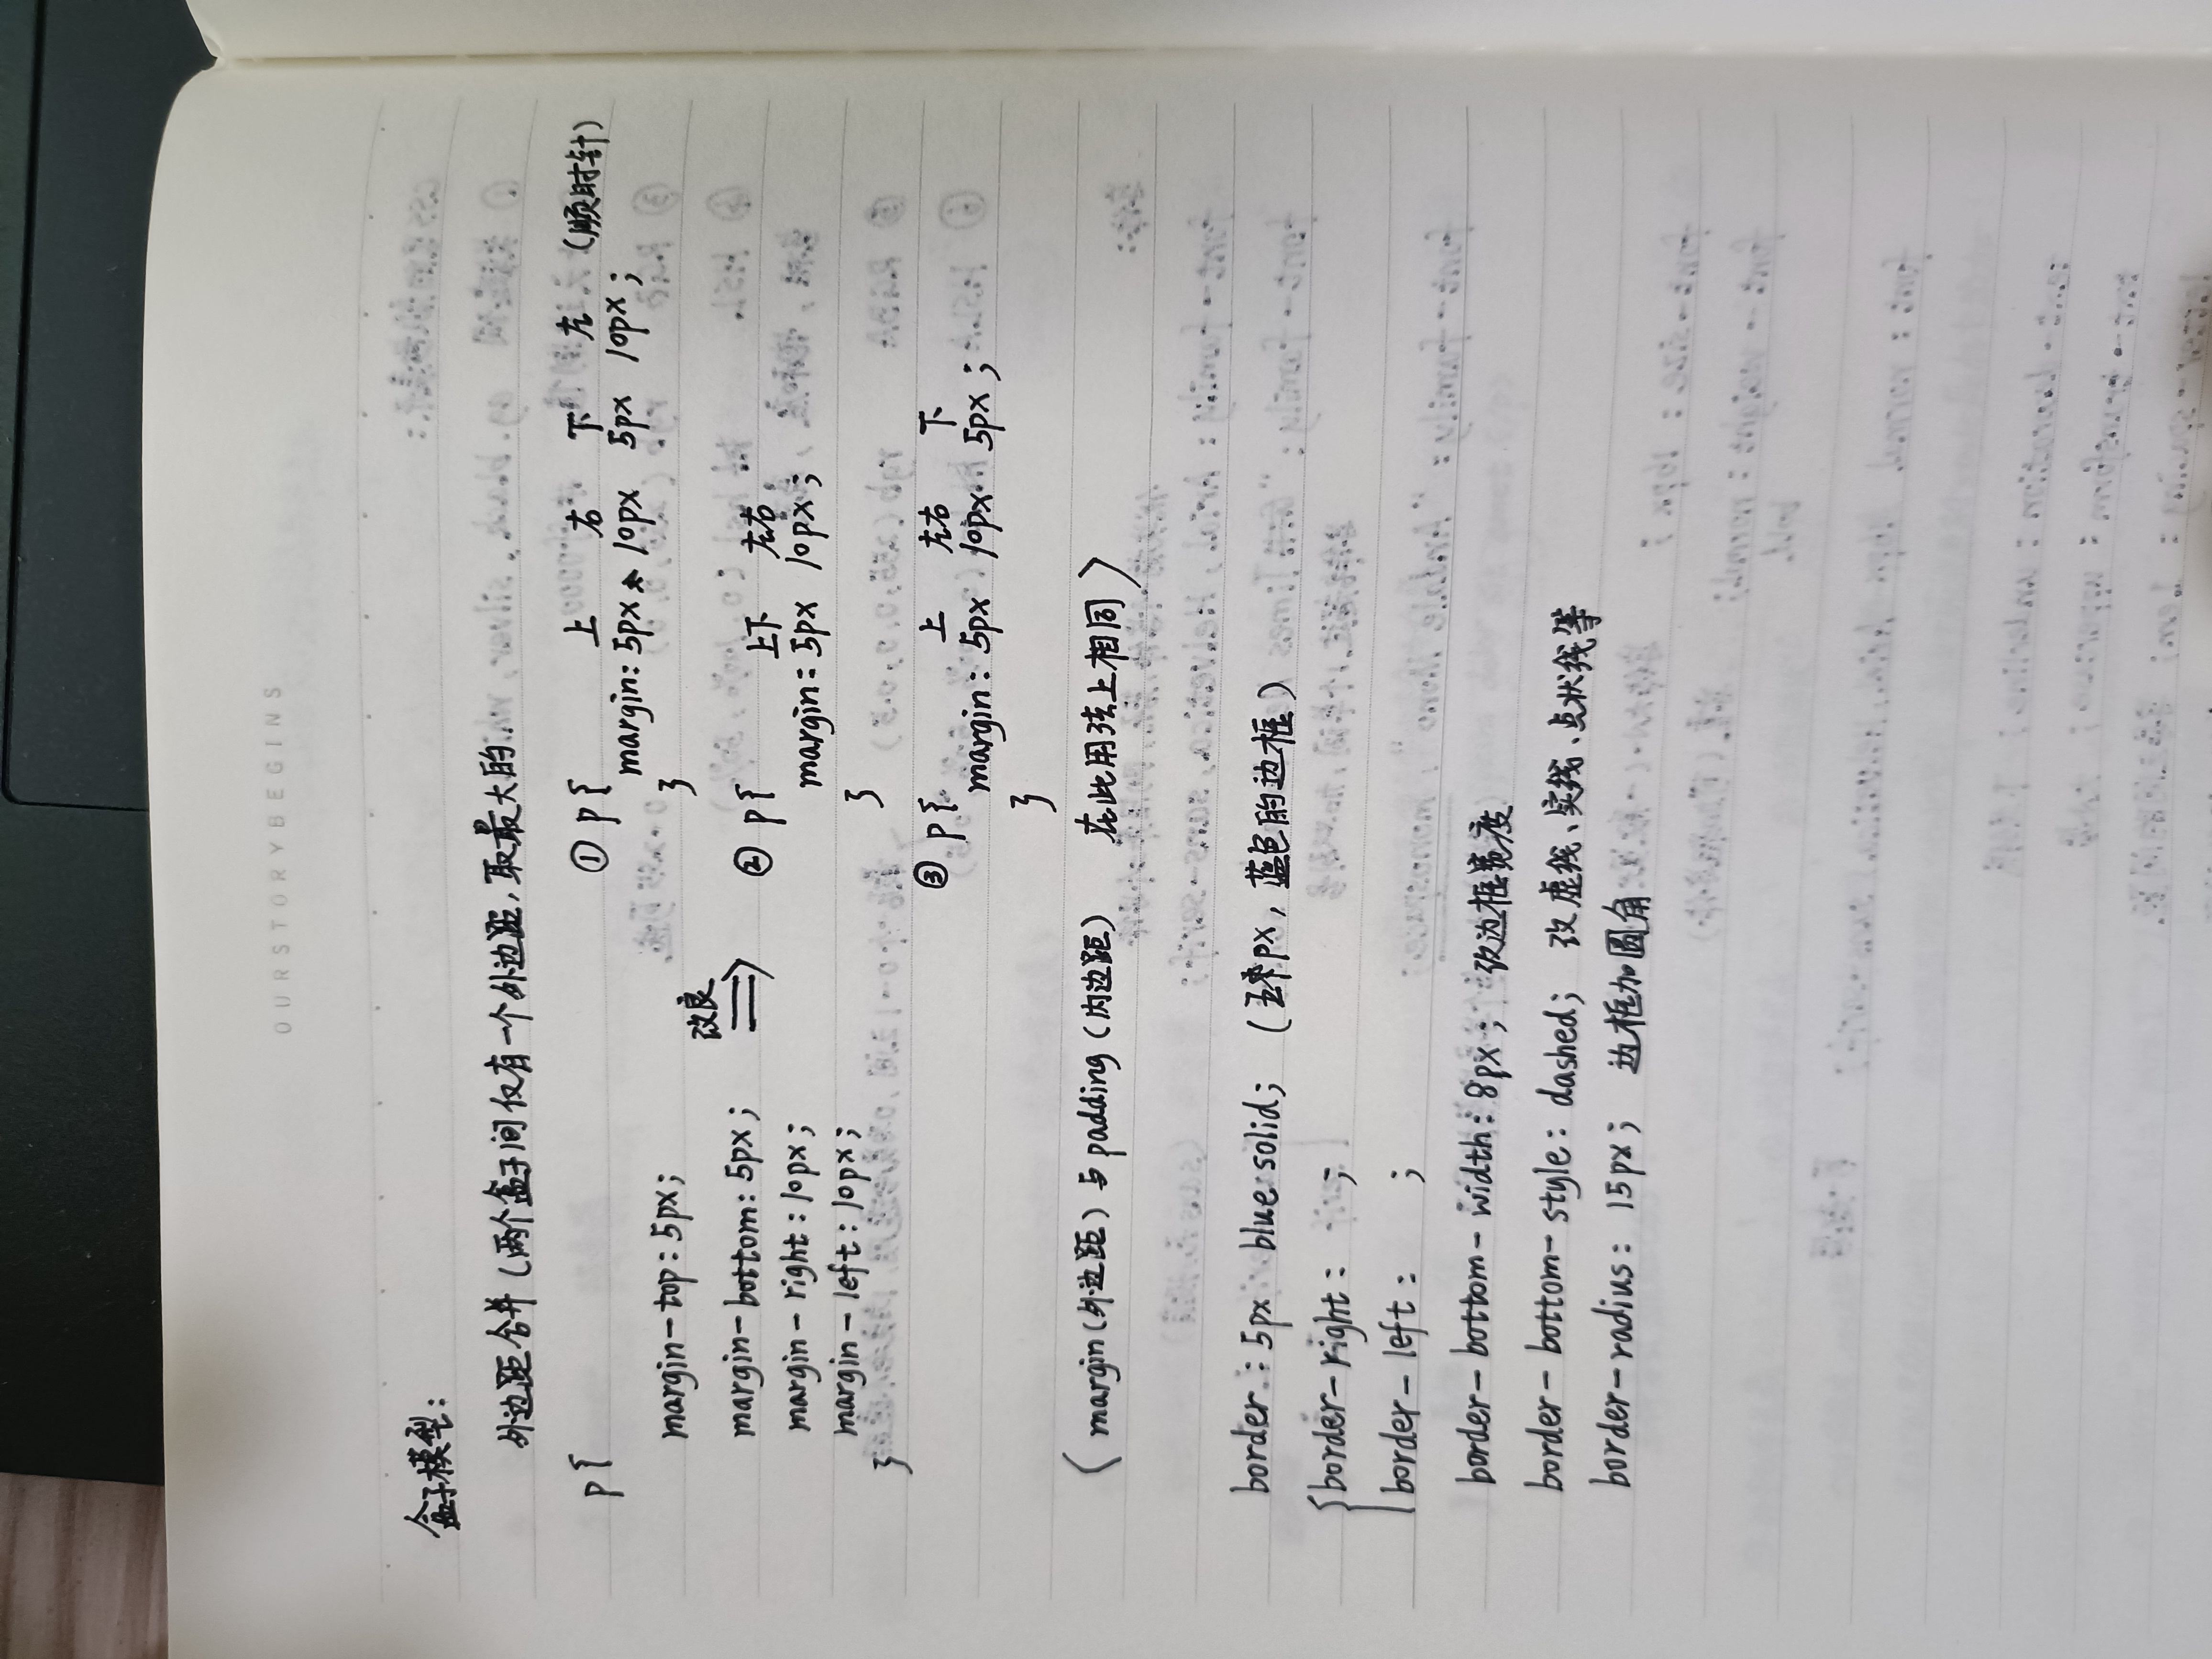 OURSTORYBEGINS
盒子模型:
外边距合并(两个盒子间仅有一个外边距,取最大的.
p{
margin-top:5px;
margin-bottom:5px;
margin-right:10px;
margin-left:10px;
}
改良
① p{
上 右 下 左(顺时针)
margin:5px 10px 5px 10px;
}
② p{
上下 左右
margin:5px 10px;
}
③ p{
上 左右 下
margin:5px 10px 5px;
}
(margin(外边距)与padding(内边距) 在此用法上相同)
border:5px blue solid; (五个px,蓝色的边框)
{border-right: ;
border-left: ;
border-bottom-width:8px; 改边框宽度
border-bottom-style:dashed; 改虚线、实线、点状线等
border-radius:15px; 边框加圆角